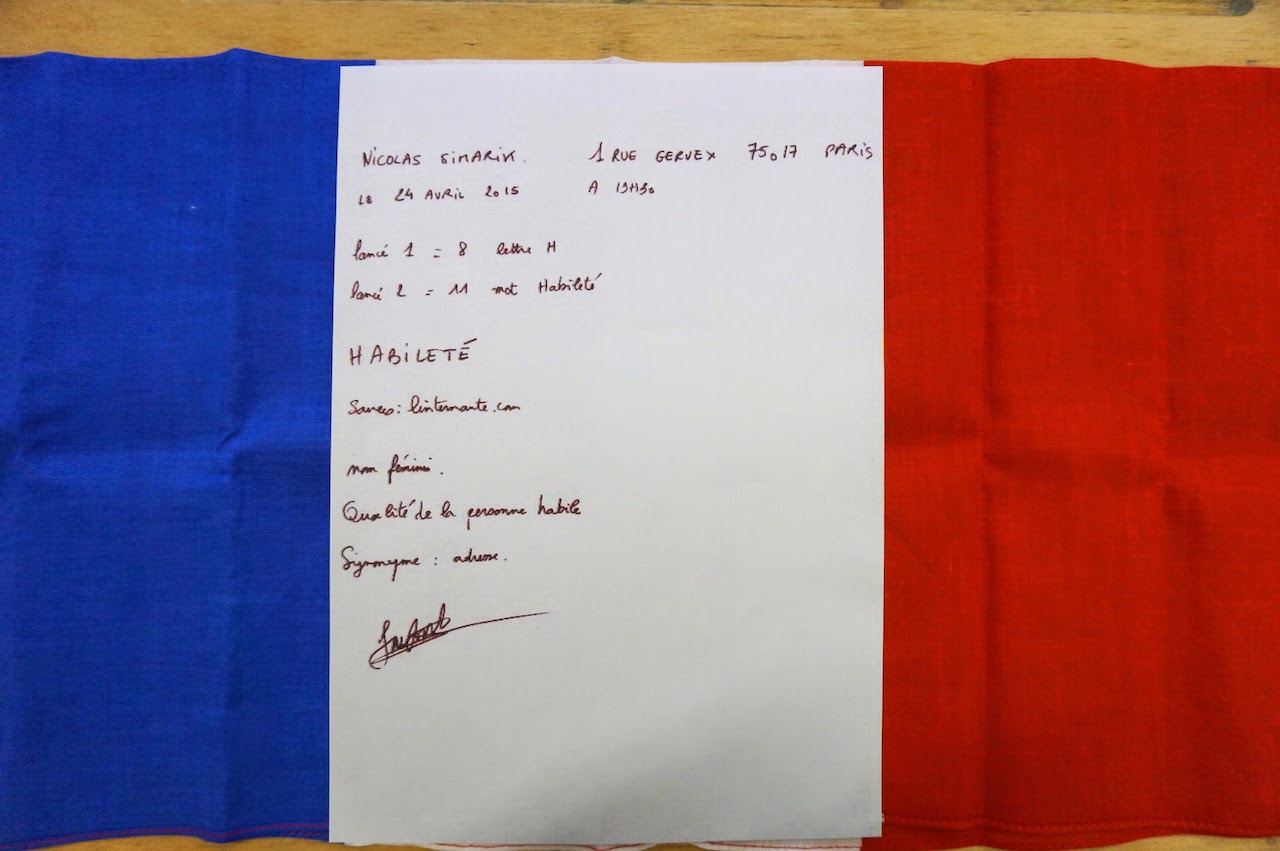 NICOLAS SIMARIK. 1 RUE GERVEX 75017 PARIS
LE 24 AVRIL 2015 A 19H30
lancé 1 = 8 lettre H
lancé 2 = 11 mot Habileté
HABILETÉ
Sources: linternaute.com
nom féminin.
Qualité de la personne habile
Synonyme : adresse.